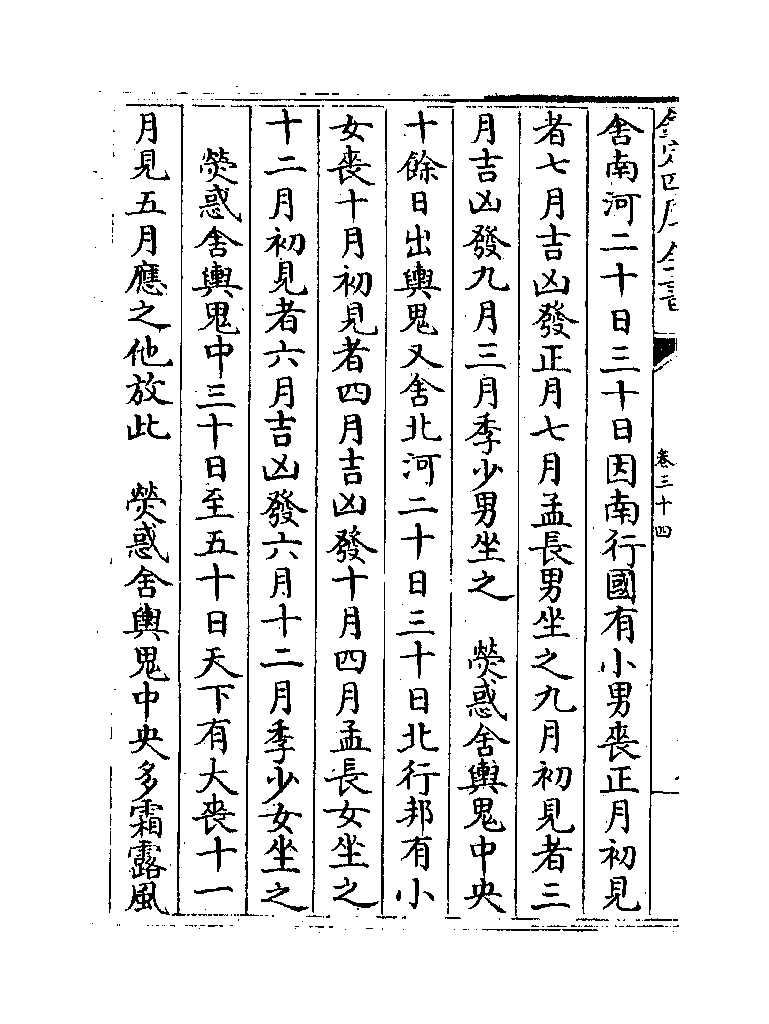 欽定四庫全書
卷三十四
舍南河二十日三十日因南行國有小男喪正月初見
者七月吉凶發正月七月孟長男坐之九月初見者三
月吉凶發九月三月季少男坐之　熒惑舍輿鬼中央
十餘日出輿鬼又舍北河二十日三十日北行邦有小
女喪十月初見者四月吉凶發十月四月孟長女坐之
十二月初見者六月吉凶發六月十二月季少女坐之
熒惑舍輿鬼中三十日至五十日天下有大喪十一
月見五月應之他放此　熒惑舍輿鬼中央多霜露風